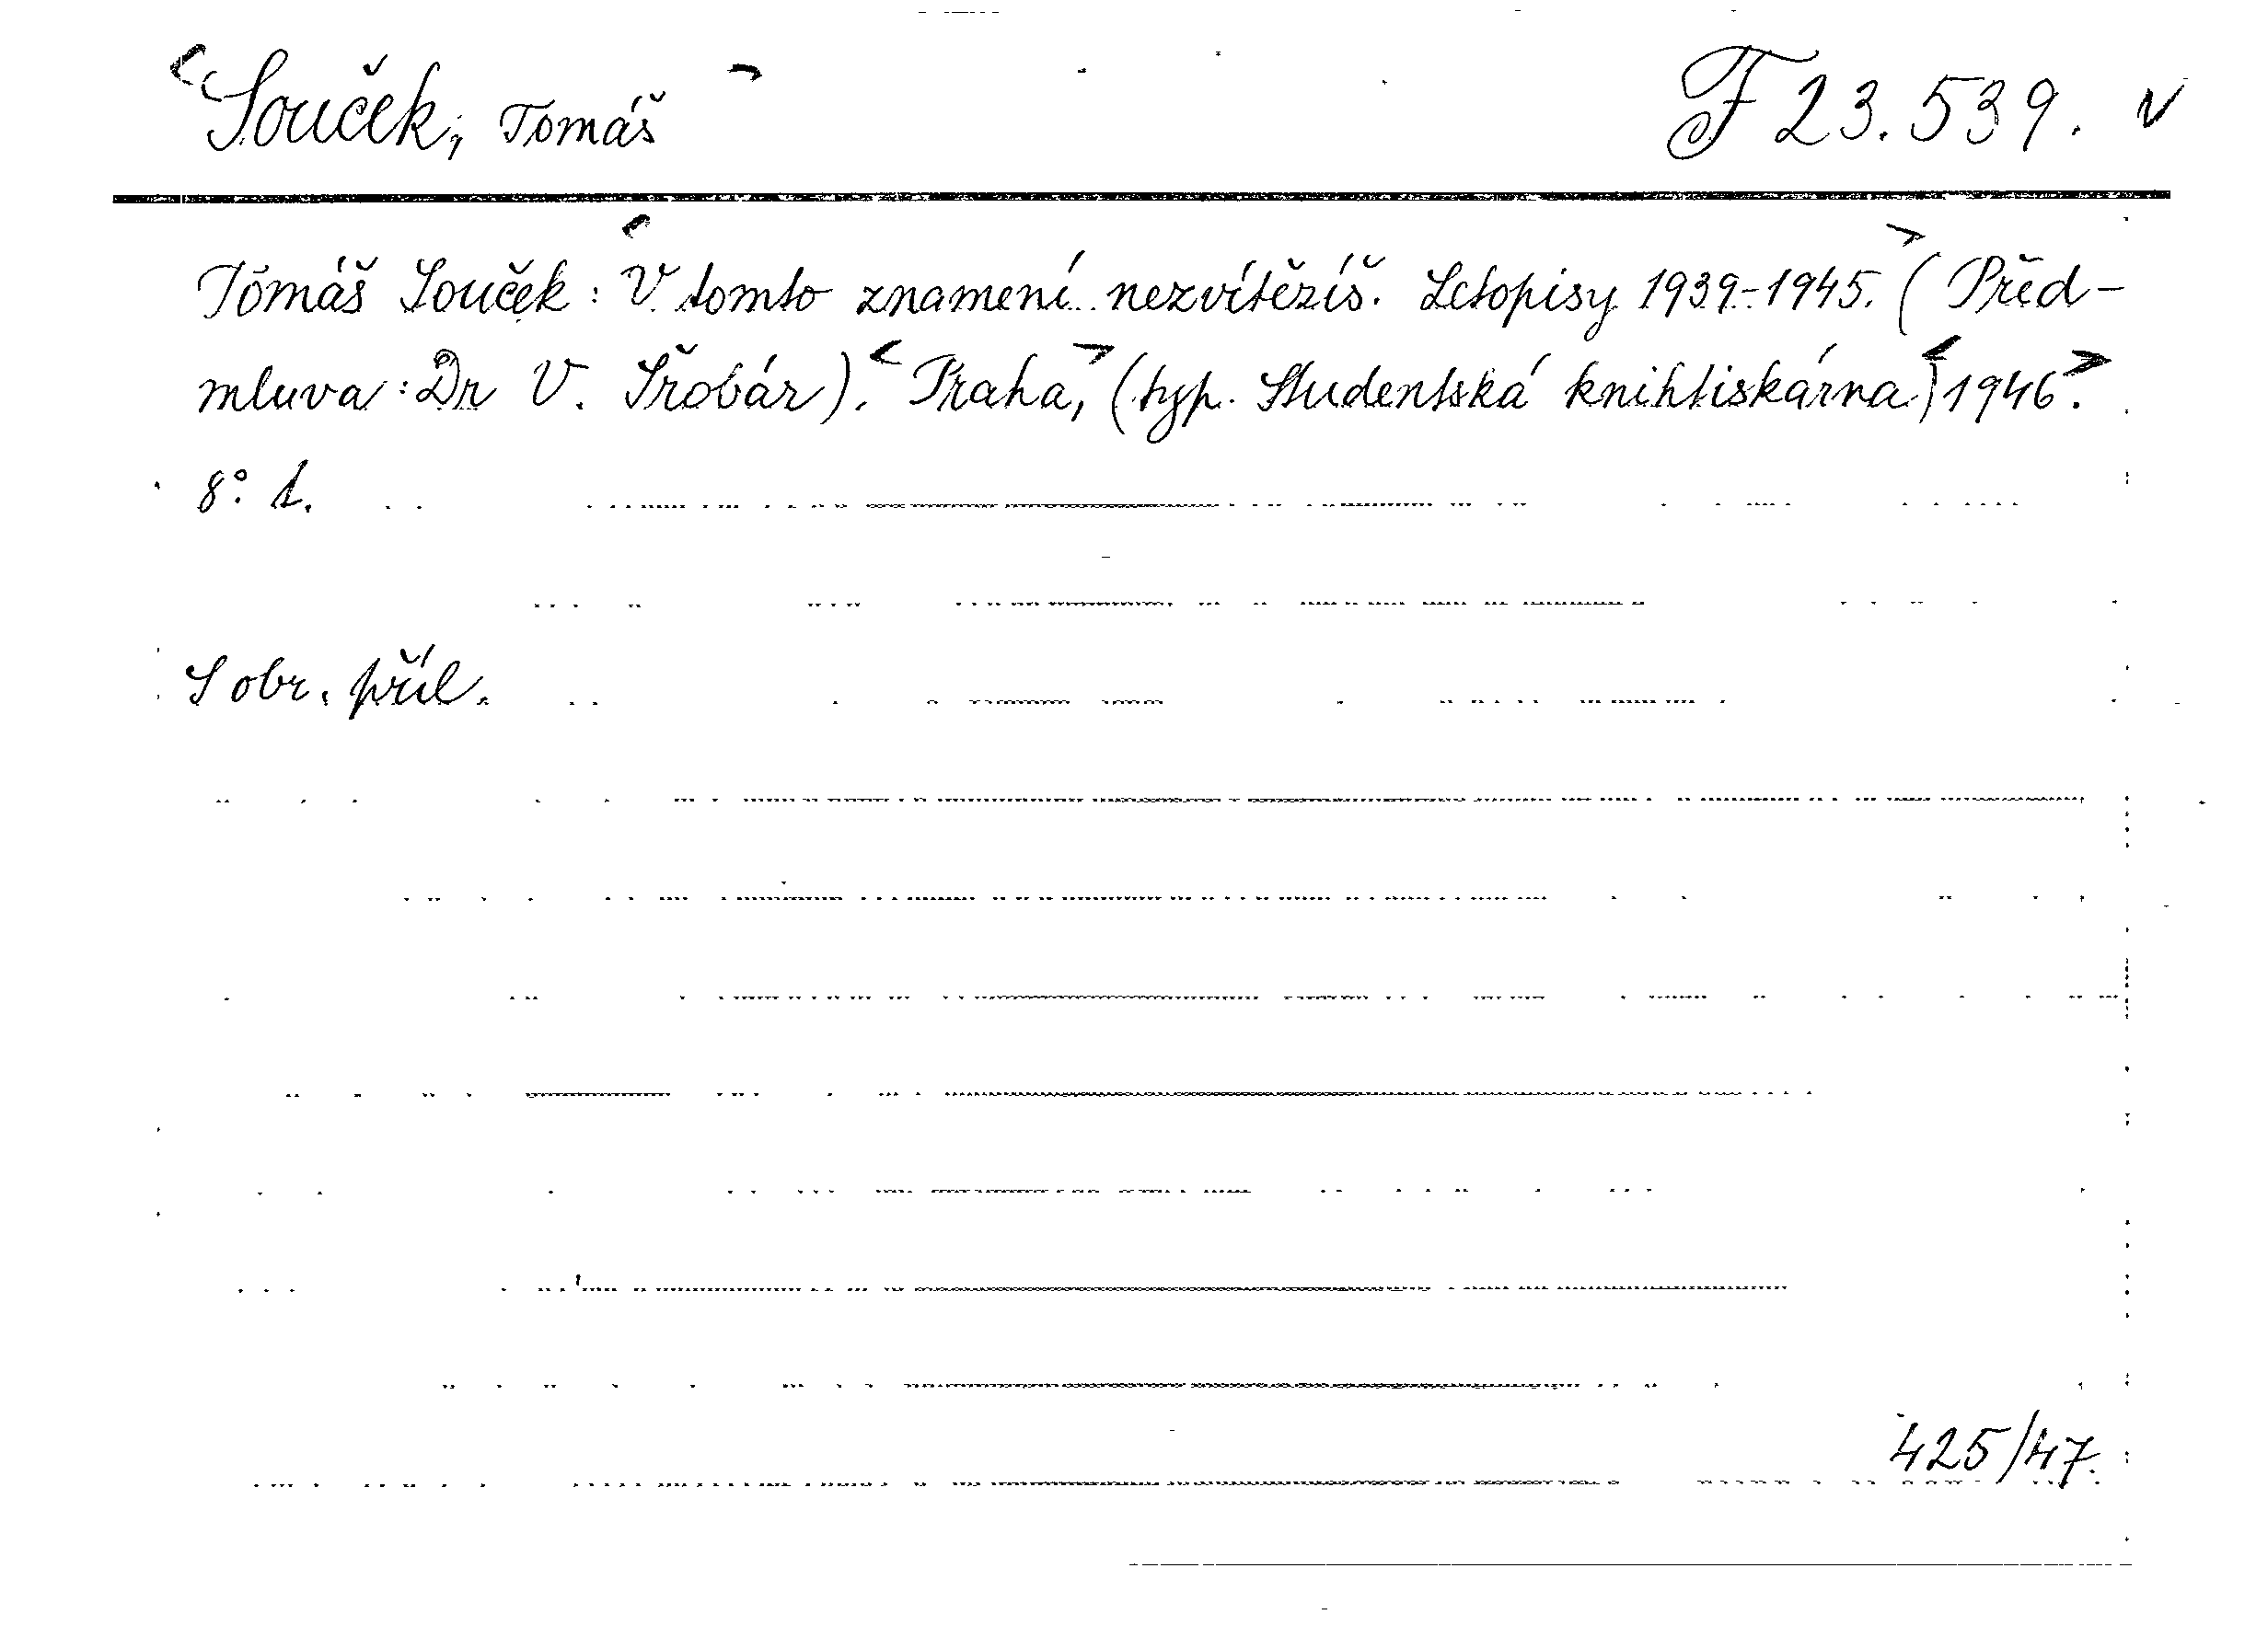 Souček, Tomáš F 23.539. v
Tomáš Souček: V tomto znamení nezvítězíš. Letopisy 1939-1945. (Před-
mluva: Dr V. Šrobár). Praha, (typ. Studentská knihtiskárna) 1946.
8°. 1.
S obr. příl.
425/47.